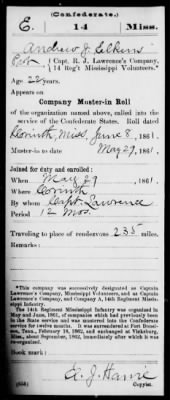 (Confederate.)
E. 14 Miss.
Andrew J. Elkins
Pvt, Capt. R. J. Lawrence's Company,
14 Reg't Mississippi Volunteers.*
Age 22 years.
Appears on
Company Muster-in Roll
of the organization named above, called into the
service of the Confederate States. Roll dated
Corinth, Miss, June 8, 1861.
Muster-in to date May 29, 1861.
Joined for duty and enrolled:
When May 29, 1861.
Where Corinth
By whom Capt. Lawrence
Period 12 mos.
Traveling to place of rendezvous 235 miles.
Remarks:
*This company was successively designated as Captain
Lawrence's Company, Mississippi Volunteers, and as Captain
Lawrence's Company, and Company A, 14th Regiment Missis-
sippi Infantry.
The 14th Regiment Mississippi Infantry was organized in
May and June, 1861, of companies which had previously been
in the State service and was mustered into the Confederate
service for twelve months. It was surrendered at Fort Donel-
son, Tenn., February 16, 1862, and exchanged at Vicksburg,
Miss., about September, 1862, after which it was
Book mark:
(655)
Copyist.